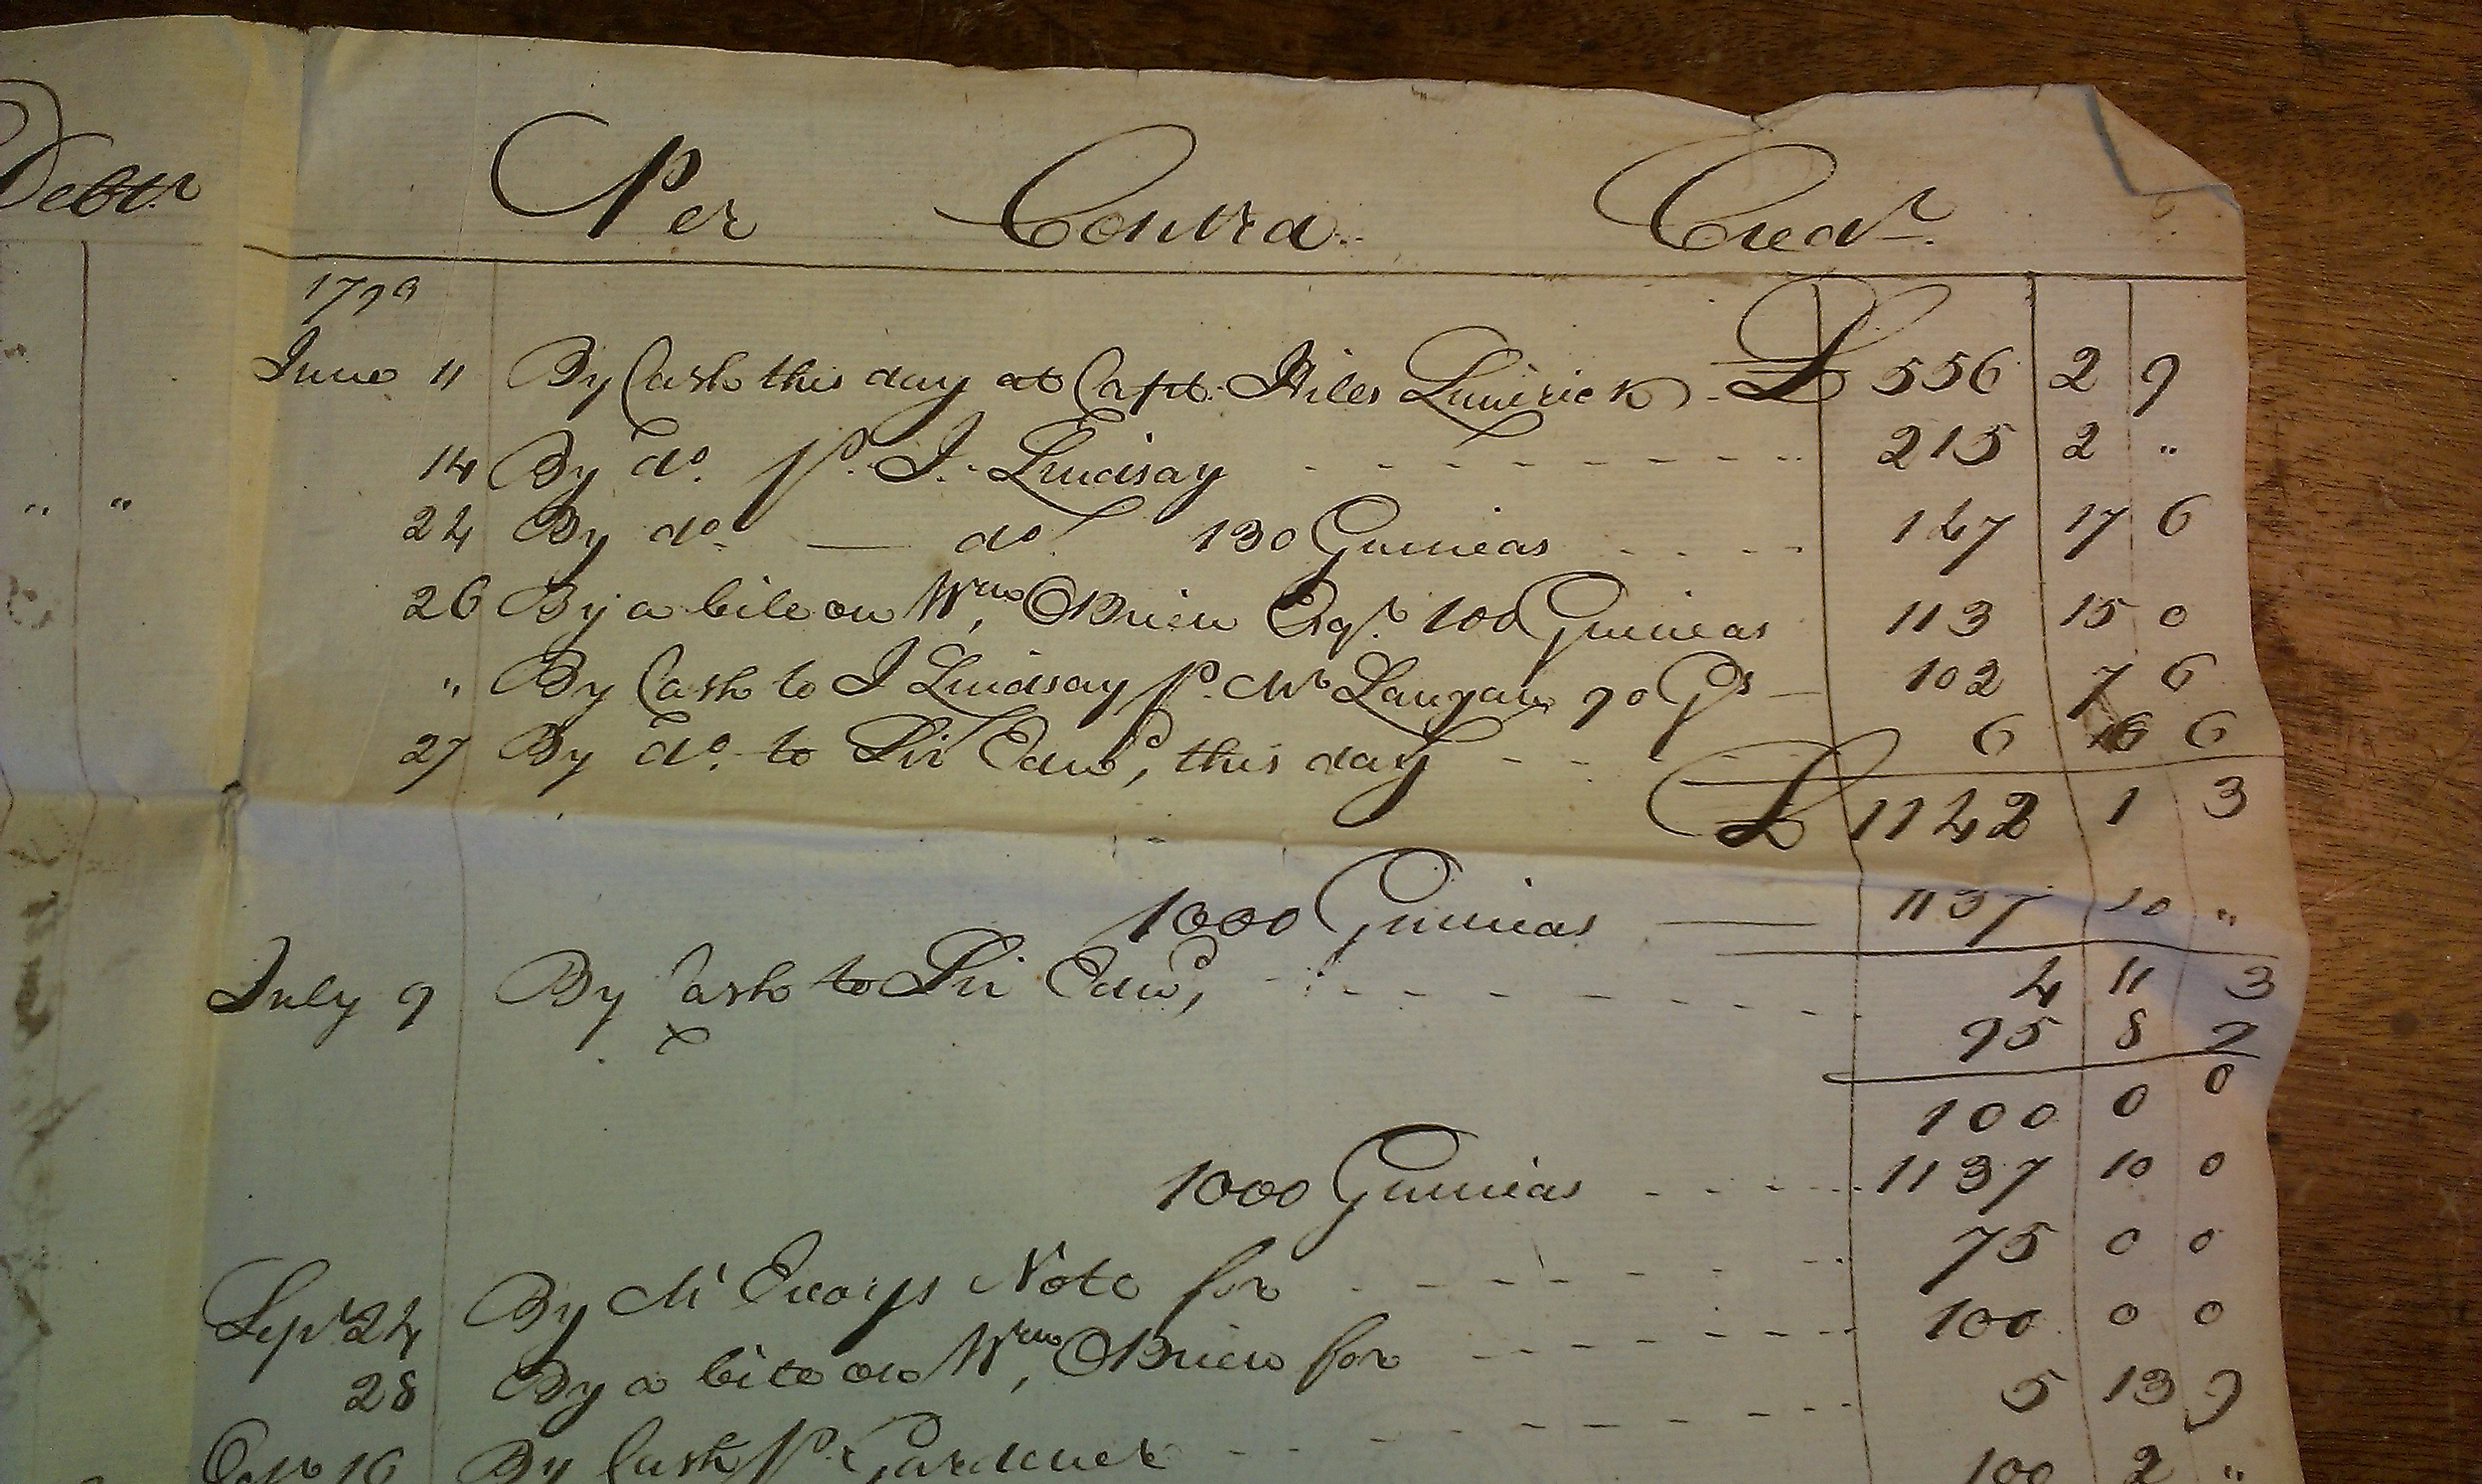 Debtr
Per Contra Credr
1799
June 11 By Cash this day at Capt. Hiles Limerick £ 556 2 9
14 By do. pr. J. Lindsay 215 2 "
24 By do. — do. 130 Guineas 147 17 6
26 By a bill on Wm. OBrien Esqr. 100 Guineas 113 15 0
" By Cash to J Lindsay pr. Mr Langan 90 Gs — 102 7 6
27 By do. to Sir Edwd, this day 6 16 6
£ 1142 1 3
1000 Guineas — 1137 10 "
4 11 3
July 9 By Cash to Sir Edwd, 95 8 9
x
100 0 0
1000 Guineas 1137 10 0
Sepr 24 By Mr Note for 75 0 0
28 By a bill on Wm, OBrien for 100 0 0
Octr 16 By Cash pr. Gardener 5 13 9
100 2 "